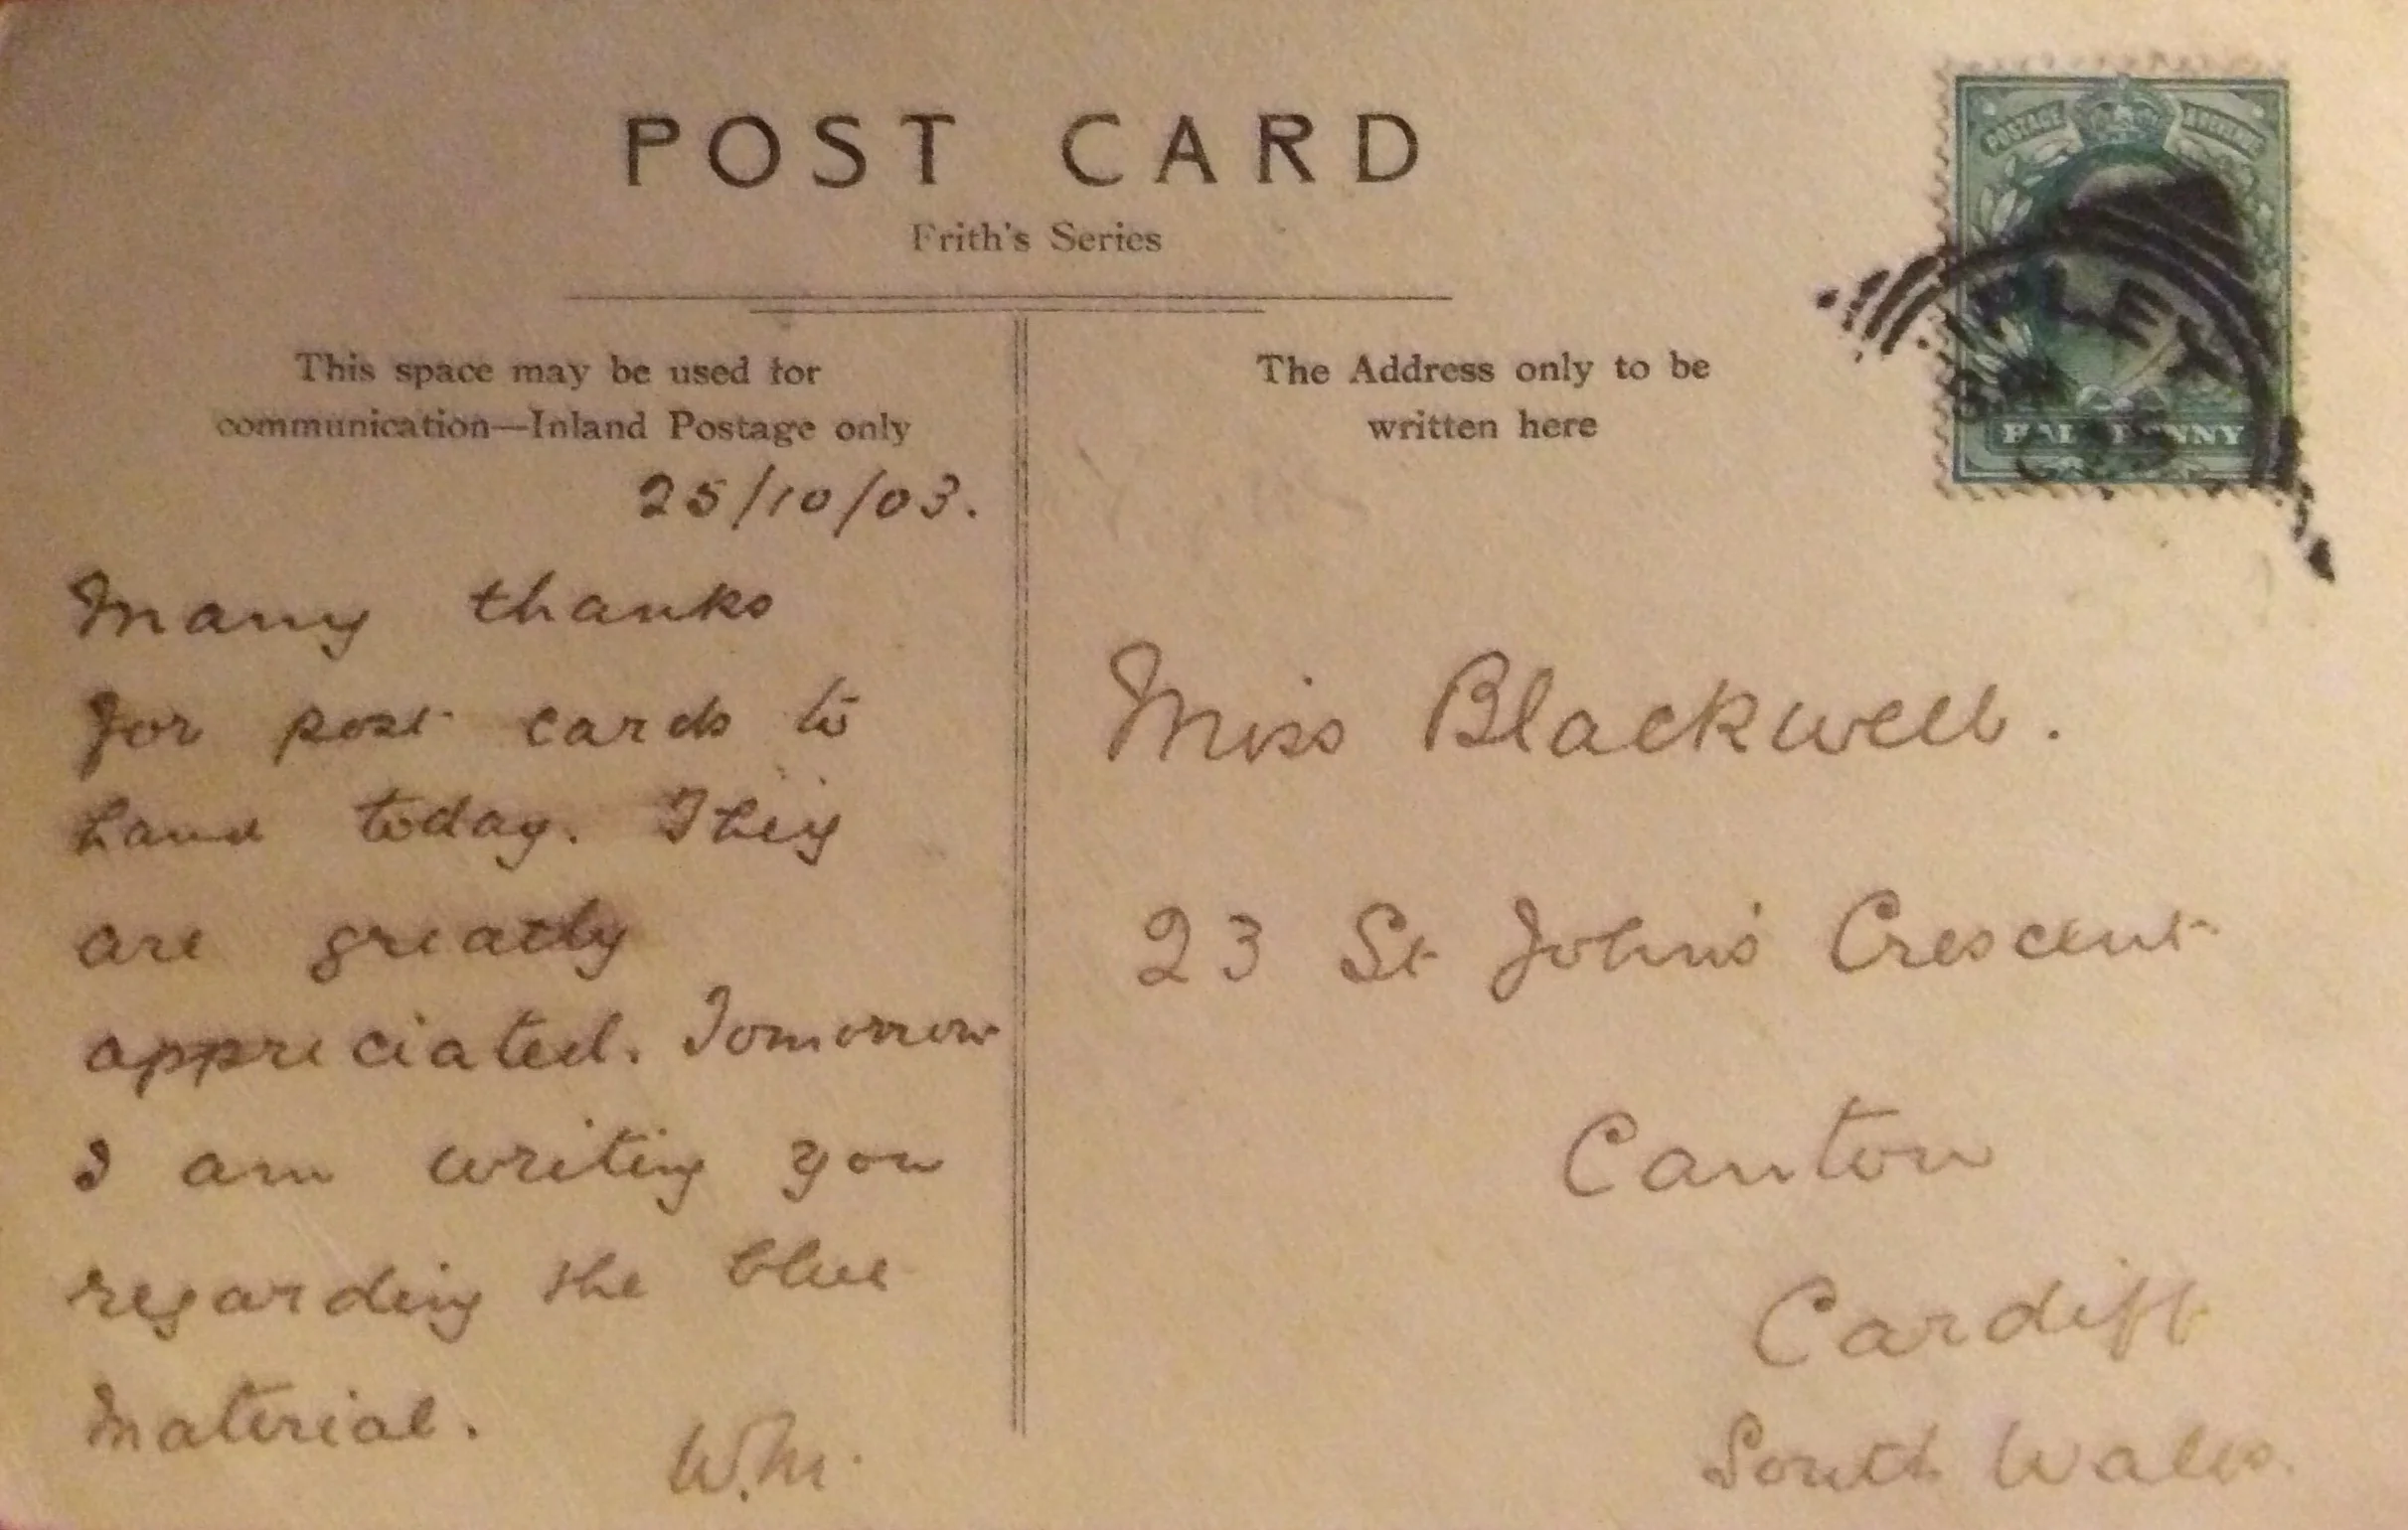 POST CARD
Frith's Series
This space may be used for
communication—Inland Postage only
The Address only to be
written here
POSTAGE REVENUE
HALFPENNY
25/10/03.
Many thanks
for post cards to
hand today. They
are greatly
appreciated. Tomorrow
I am writing you
regarding the blue
material.
W.M.
Miss Blackwell.
23 St John's Crescent
Canton
Cardiff
South Wales.